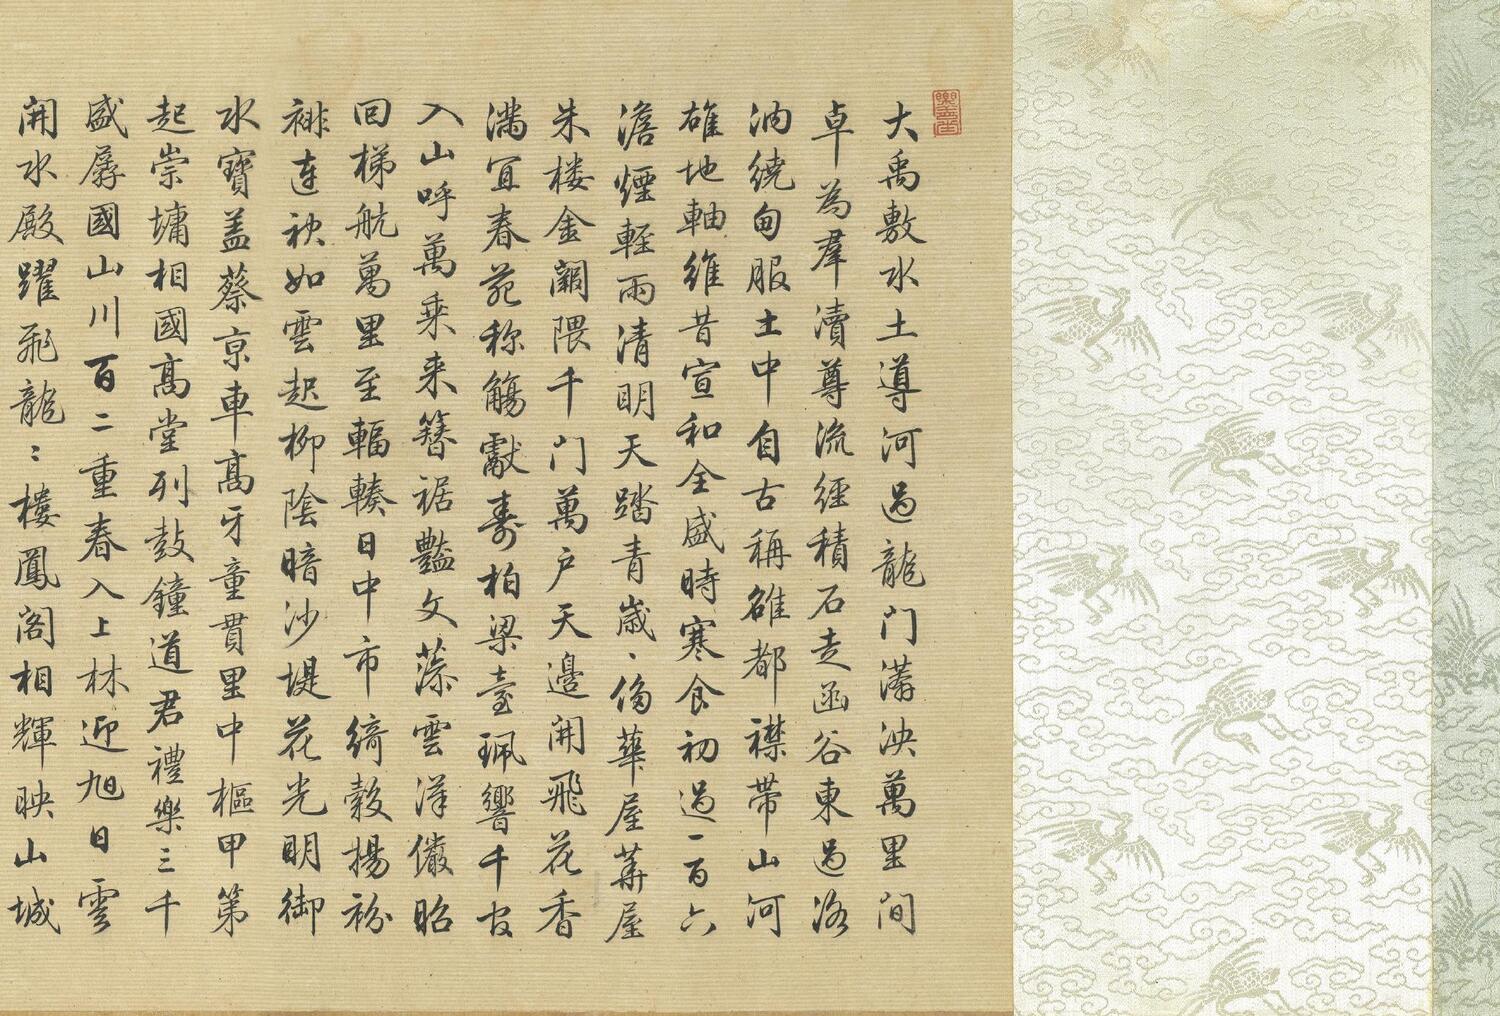 大禹敷水土導河過龍門瀰泱萬里間
卓為群瀆尊流經積石走函谷東過洛
汭繞甸服土中自古稱雄都襟帶山河
雄地軸維昔宣和全盛時寒食初過一百六
澹煙輕雨清明天踏青歲〻侈華屋華屋
朱樓金闕隈千门萬户天邊開飛花香
滿宜春苑称觴獻壽柏梁臺珮響千官
入山呼萬乘来簪裾艷文藻雲漢儼昭
回梯航萬里至輻輳日中市綺縠揚紛
緋連袂如雲起柳陰暗沙堤花光明御
水寶盖蔡京車高牙童貫里中樞甲第
起崇墉相國高堂列鼓鐘道君禮樂三千
盛孱國山川百二重春入上林迎旭日雲
開水殿躍飛龍〻樓鳳阁相輝映山城